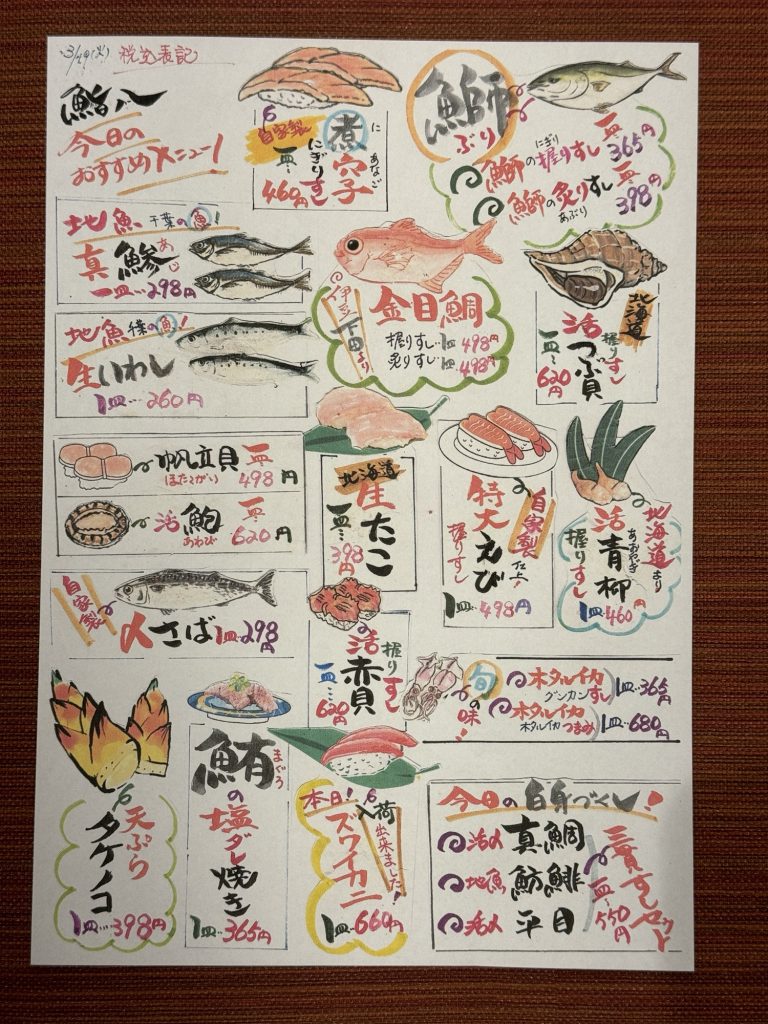 3/19(火) 税込表記
鮨八
今日の
おすすめメニュー!
自家製
煮穴子
に あなご
にぎりすし
一皿…460円
鰤
ぶり
鰤の握りすし 一皿 365円
にぎり
鰤の炙りすし 一皿 398円
あぶり
地魚 千葉の魚!
真鯵
あじ
一皿…298円
伊豆下田より
金目鯛
握りすし 一皿…498円
炙りすし 一皿…498円
北海道
活つぶ貝
握りすし
一皿…620円
地魚 千葉の魚!
生いわし
1皿…260円
帆立貝
ほたてがい
一皿…498円
活鮑
あわび
一皿…620円
北海道
生たこ
一皿…398円
自家製仕上
特大えび
握りすし
1皿…498円
北海道より
活青柳
あおやぎ
握りすし
1皿…460円
自家製
〆さば 1皿…298円
活赤貝
握りすし
一皿…620円
旬の味!
ホタルイカ
グンカンすし 1皿…365円
ホタルイカ
ホタルイカつまみ 1皿…680円
天ぷら
タケノコ
1皿…398円
鮪の塩ダレ焼き
まぐろ
1皿…365円
本日!
入荷出来ました!
ズワイカニ
1皿…660円
今日の白身づくし!
活〆 真鯛
地魚 魴鯡
活〆 平目
三貫すしセット
一皿…550円